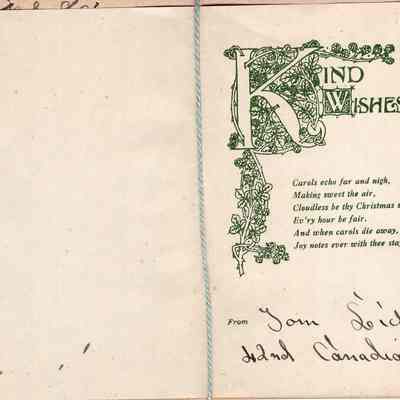 KIND
WISHES
Carols echo far and nigh,
Making sweet the air,
Cloudless be thy Christmas
Ev'ry hour be fair.
And when carols die away,
Joy notes ever with thee
From Tom
42nd